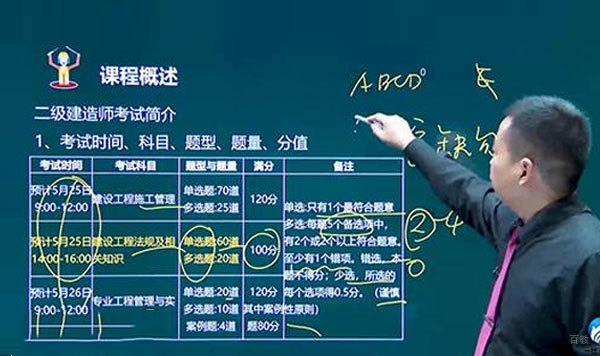 课程概述
二级建造师考试简介
1、考试时间、科目、题型、题量、分值
考试时间 考试科目 题型与题量 满分 备注
预计5月25日 9:00-12:00 建设工程施工管理 单选题:70道 多选题:25道 120分
预计5月25日 14:00-16:00 建设工程法规及相关知识 单选题:60道 多选题:20道 100分
预计5月26日 9:00-12:00 专业工程管理与实 单选题:20道 多选题:10道 案例题:4道 120分 其中案例 题80分
单选:只有1个最符合题意
多选:每题5个备选项中,
有2个或2个以上符合题意,
至少有1个错项。错选,本
题不得分;少选,所选的
每个选项得0.5分。(谨慎
性原则)
ABCD
2-4
0
百教